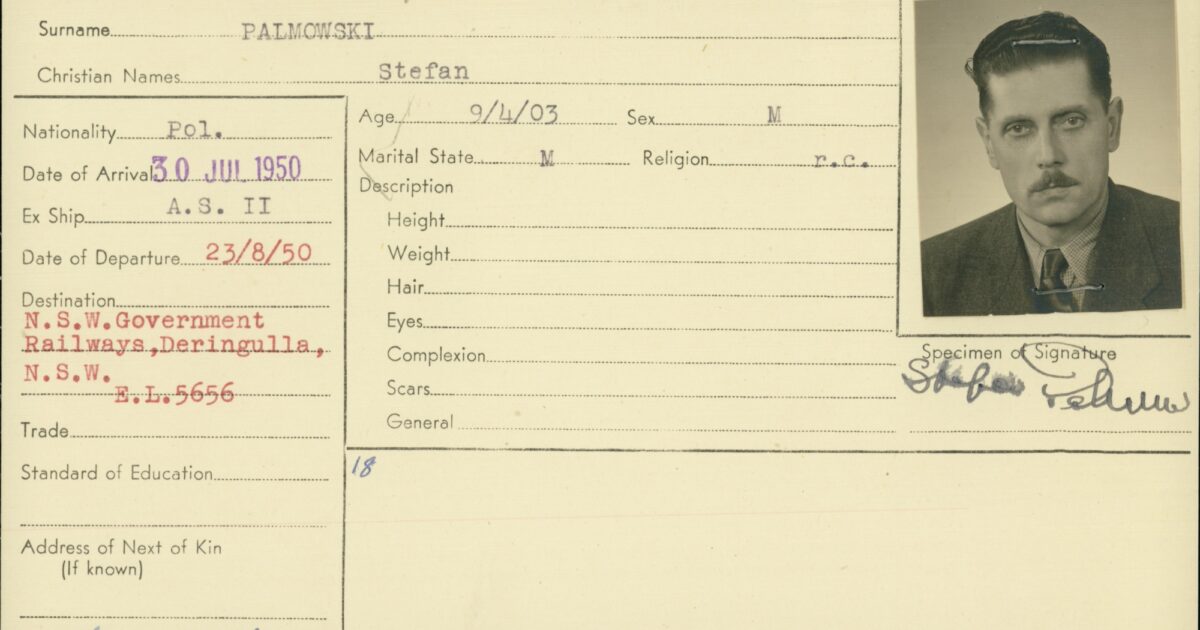 Surname PALMOWSKI
Christian Names Stefan
Nationality Pol.
Date of Arrival 30 JUL 1950
Ex Ship A.S. II
Date of Departure 23/8/50
Destination
N.S.W.Government
Railways,Deringulla,
N.S.W.
E.L.5656
Trade
Standard of Education
Address of Next of Kin
(If known)
Age 9/4/03 Sex M
Marital State M Religion r.c.
Description
Height
Weight
Hair
Eyes
Complexion
Scars
General
18
Specimen of Signature
Stefan